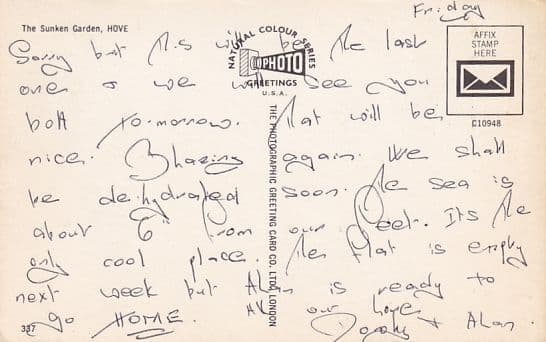 Friday
The Sunken Garden, HOVE
NATURAL COLOUR SERIES
PHOTO
GREETINGS
U.S.A.
AFFIX
STAMP
HERE
C10948
THE PHOTOGRAPHIC GREETING CARD CO. LTD., LONDON
Sorry but this will be the last
one & we will see you
both to-morrow. That will be
nice. Blazing again. We shall
be de-hydrated soon. The sea is
about 6" from our feet. Its the
only cool place. The flat is empty
next week but Alan is ready to
go HOME. All our love
& Alan.
337